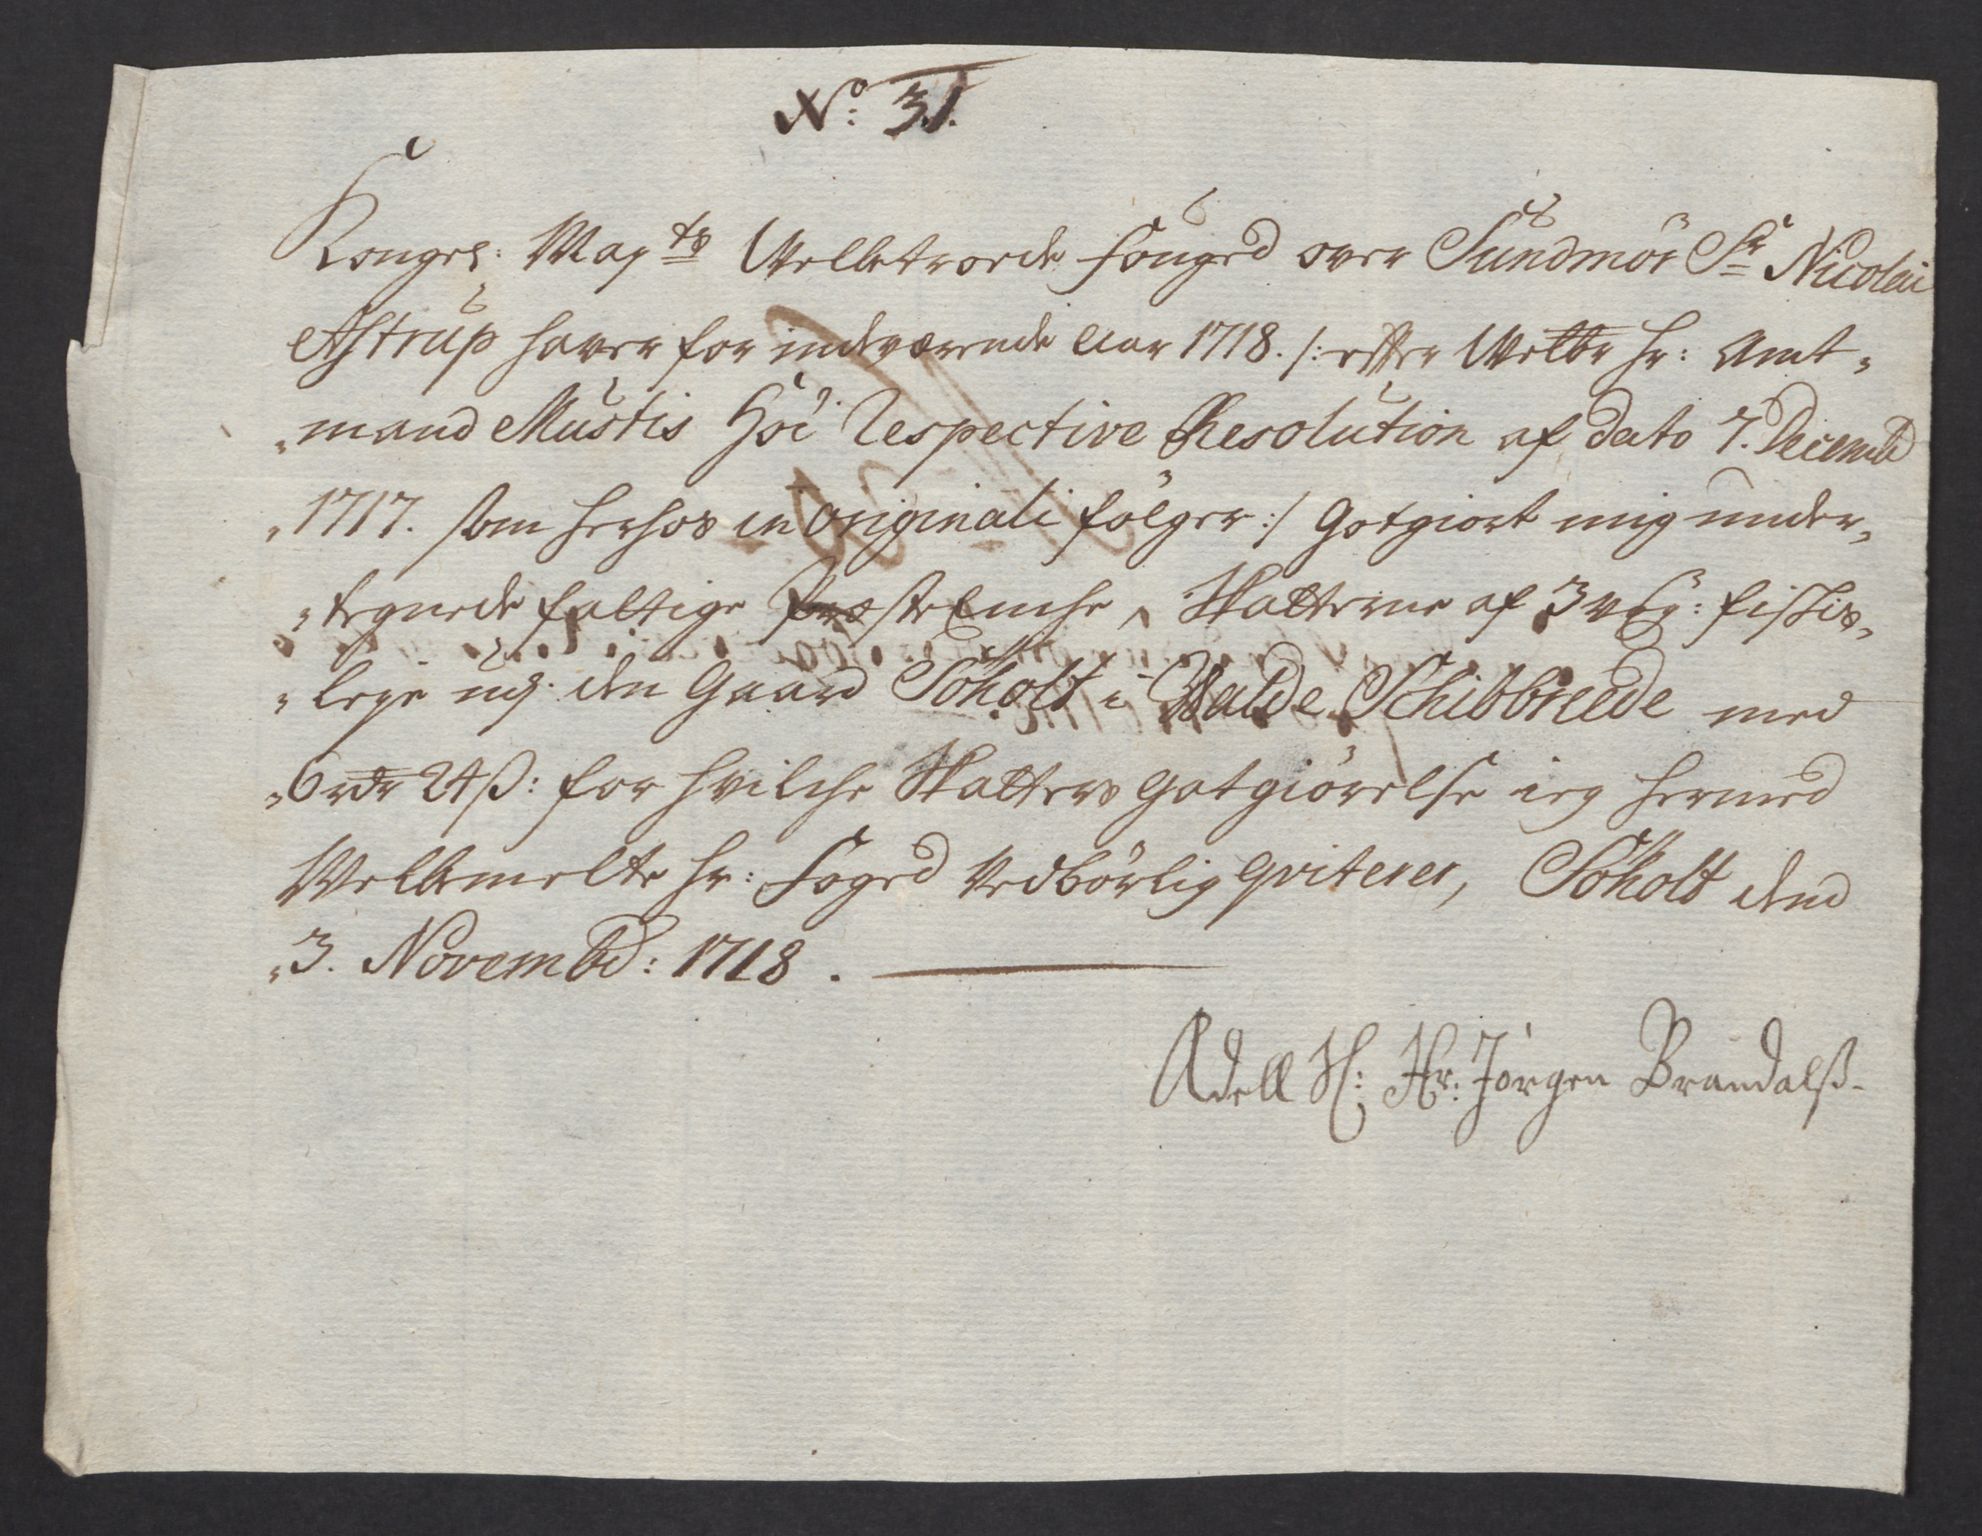 No: 31.
Kongel: Mayts Velbetroede Fouged over Sundmör Sr Nicolai
Astrup haver for indværende Aar 1718. /: effter Velbr hr: Amt-
-mand Mustis Höi Respective Resolution af dato 7. Decembr
1717. som herhos in originali fölger :/ Gotgiort mig under-
-tegnede fattige Præste Enche, Skatterne af 3 vog: fiskis-
-leye udj den Gaard Söholt i Walde Schibbreede med
6 rdr 24 ß: for hvilche Skatters Gotgiörelse ieg hermed
Velbemelte hr: Foged Vedbörlig qviterer, Söholt dend
3. Novembr: 1718.
Adell Sl: Hr: Jörgen Brandalß-